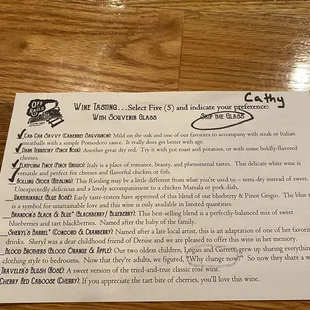 Cathy
OFF THE RAILS
WINE TASTING...Select Five (5) and indicate your preference:
WITH SOUVENIR GLASS
SKIP THE GLASS
CAB CAB SAVVY (CABERNET SAUVIGNON): Mild on the oak and one of our favorites to accompany with steak or Italian
meatballs with a simple Pomodoro sauce. It really does get better with age.
TERRITORY (PINOT NOIR): Another great dry red. Try it with pot roast and potatoes, or with some boldly-flavored
cheeses.
PLATFORM PINOT (PINOT GRIGIO): Italy is a place of romance, beauty, and phenomenal tastes. This delicate white wine is
versatile and perfect for cheeses and flavorful chicken or fish.
ROLLING STOCK (RIESLING): This Riesling may be a little different from what you're used to – semi-dry instead of sweet.
Unexpectedly delicious and a lovely accompaniment to a chicken Marsala or pork dish.
UNATTAINABLE BLUE (ROSE): Early taste-testers have approved of this blend of our blueberry & Pinot Grigio. The blue
is a symbol for unattainable love and this wine is only available in limited quantities.
BRANDON'S BLACK & BLUE (BLACKBERRY/ BLUEBERRY): This best-selling blend is a perfectly-balanced mix of sweet
blueberries and tart blackberries. Named after the baby of the family.
CHERYL'S BARREL (CONCORD & CRANBERRY): Named after a late local artist, this is an adaptation of one of her favorite
drinks. Sheryl was a dear childhood friend of Denise and we are pleased to offer this wine in her memory.
BLOOD BROTHERS (BLOOD ORANGE & APPLE): Our two oldest children, Logan and Garrett, grew up sharing everything
clothing style to bedrooms. Now that they're adults, we figured, "Why change now?" So now they share a w
TRAVELER'S BLUSH (ROSE): A sweet version of the tried-and-true classic rosé wine.
CHERRY RED CABOOSE (CHERRY): If you appreciate the tart bite of cherries, you'll love this wine.